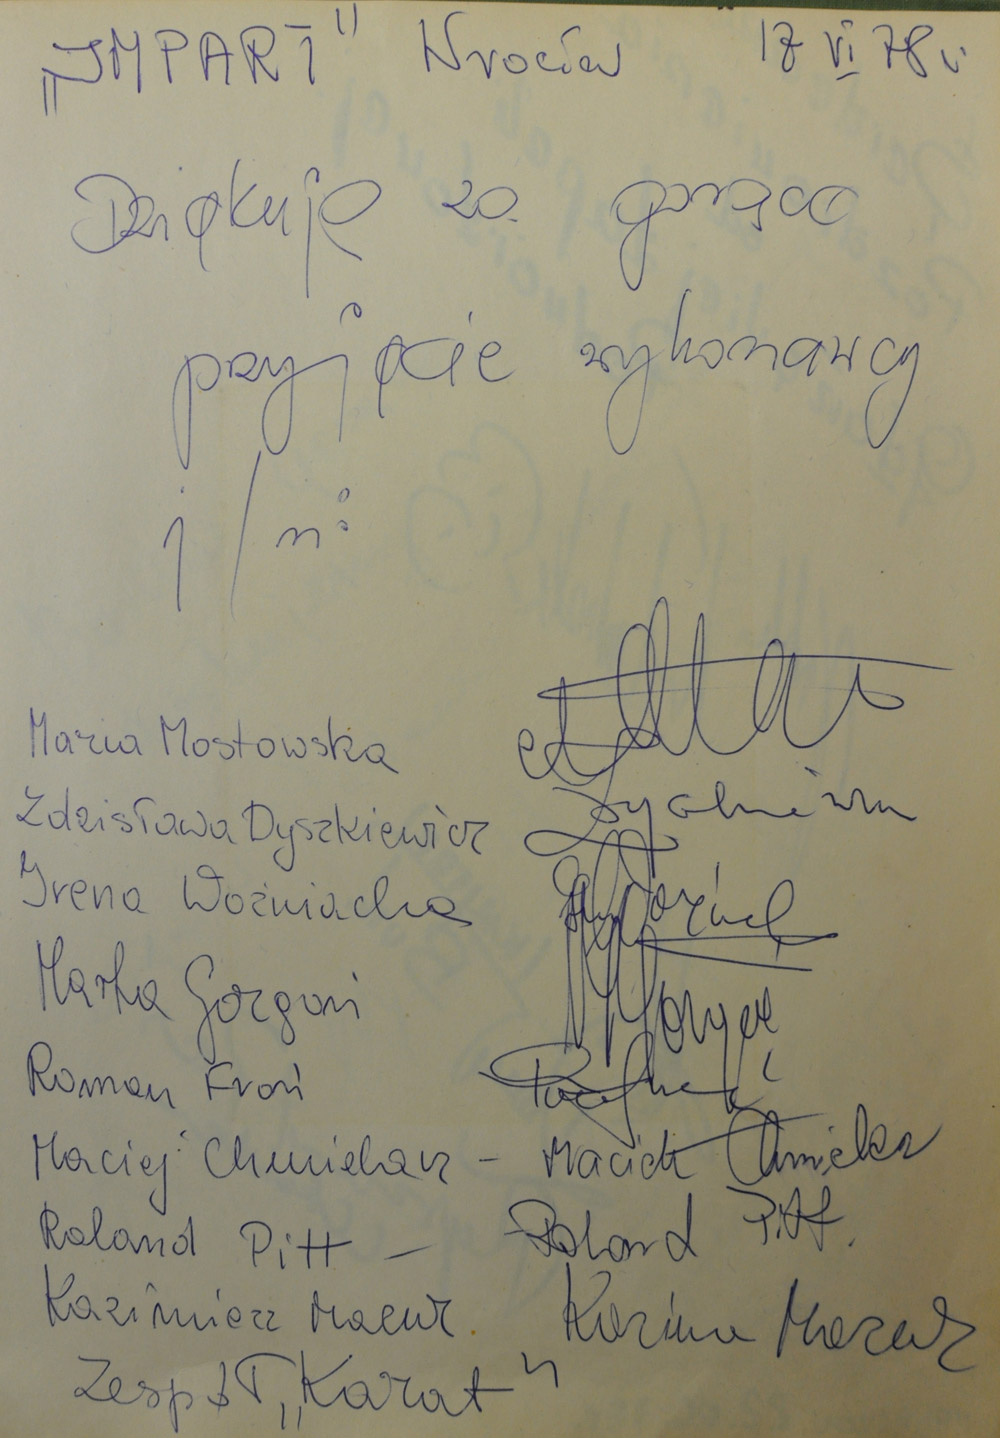 „IMPART" Wrocław 17 VI 78 r.
Dziękuję za gorące
przyjęcie wykonawcy
j/n:
Maria Mostowska
Zdzisława Dyszkiewicz
Irena Woźniacka
Marta Gorzgoń
Roman Froń
Maciej Chmielarz - Maciek Chmielarz
Roland Pitt - Roland Pitt.
Kazimierz Mazur. Mazur
Zespół „Karat"